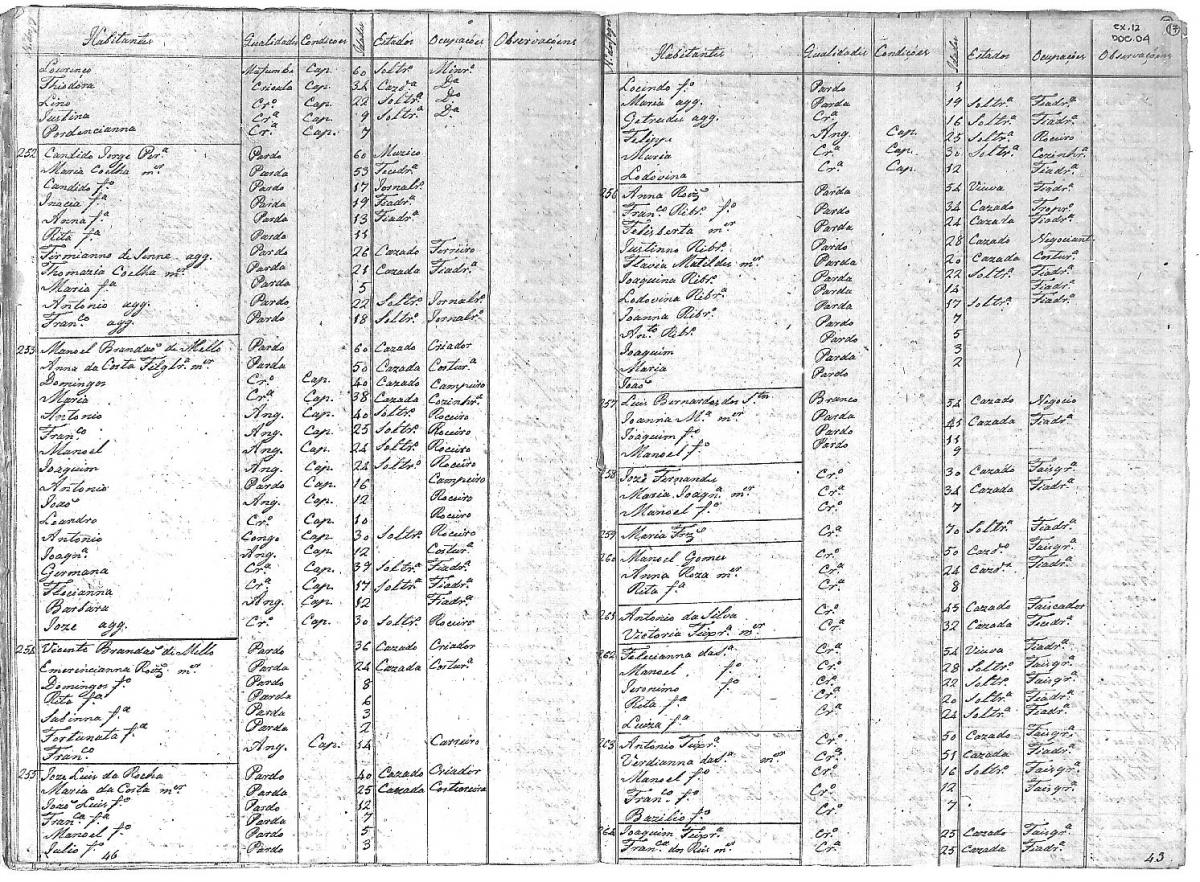 Habitantes Qualidades Condições Idades Estados Ocupações Observações
Lourenço Mofumbe Cap. 60 Soltrº Minrº
Theodora Crioula Cap. 34 Cazdª Dª
Lino Crº Cap. 22 Soltrº Dº
Justina Crª Cap. 9 Soltrª Dª
Pordencianna Crª Cap. 7
252 Candido Jorge Perª Pardo 60 Muzico
Maria Coelha mer Parda 53 Fiadrª
Candido fº Pardo 17 Jornalrº
Inacia fª Parda 19 Fiadrª
Anna fª Parda 13 Fiadrª
Rita fª Parda 11
Firmianno de Senne agg. Pardo 26 Cazado Ferreiro
Thomazia Coelha mer Parda 21 Cazada Fiadrª
Maria fª Parda 5
Antonio agg. Pardo 22 Soltrº Jornalrº
Francº agg. Pardo 18 Soltrº Jornalrº
253 Manoel Brandaõ de Mello Pardo 60 Cazado Criador
Anna da Costa mer Parda 50 Cazada Costurª
Domingos Crº Cap. 40 Cazado Campeiro
Maria Crª Cap. 38 Cazada Cozinhrª
Antonio Ang. Cap. 40 Soltrº Roceiro
Francº Ang. Cap. 25 Soltrº Roceiro
Manoel Ang. Cap. 24 Soltrº Roceiro
Joaquim Ang. Cap. 24 Soltrº Roceiro
Antonio Pardo Cap. 16 Campeiro
Joaõ Ang. Cap. 12 Roceiro
Leandro Crº Cap. 10 Roceiro
Antonio Congo Cap. 30 Soltrº Roceiro
Joaqnª Ang. Cap. 12 Costurª
Germana Crª Cap. 39 Soltrª Fiadrª
Flecianna Crª Cap. 17 Soltrª Fiadrª
Barbara Ang. Cap. 12 Fiadrª
Joze agg. Crº Cap. 30 Soltrº Roceiro
254 Vicente Brandaõ de Mello Pardo 36 Cazado Criador
Emerencianna Roiz mer Parda 24 Cazada Costurª
Domingos fº Pardo 8
Rita fª Parda 6
Sabinna fª Parda 3
Fortunata fª Parda 2
Francº Ang. Cap. 14 Carreiro
255 Joze Luis da Rocha Pardo 40 Cazado Criador
Maria da Costa mer Parda 25 Cazada Costureira
Joaõ Luis fº Pardo 12
Francª fª Parda 7
Manoel fº Pardo 5
Julio fº Pardo 3
46
Cx.12
Doc.04
17
Habitantes Qualidades Condições Idades Estados Ocupações Observações
Locindo fº Pardo 1
Maria agg. Parda 19 Soltrª Fiadrª
Getrudes agg. Crª 16 Soltrª Fiadrª
Felippe Ang. Cap. 25 Soltrº Roceiro
Maria Crª Cap. 30 Soltrª Cozinhrª
Lodovina Crª Cap. 12 Fiadrª
256 Anna Roiz Parda 54 Viuva Fiadrª
Francº Ribrº fº Pardo 34 Cazado Troprº
Felisberta mer Parda 24 Cazada Fiadrª
Justinno Ribrº Pardo 28 Cazado Negociant.
Flavia Matildes mer Parda 20 Cazada Costur.ª
Joaquina Ribrª Parda 22 Soltrª Fiadrª
Lodovina Ribrª Parda 14 Fiadrª
Joanna Ribrª Parda 17 Soltrª Fiadrª
Antº Ribrº Pardo 7
Joaquim Pardo 5
Maria Parda 3
Joaõ Pardo 2
257 Luis Bernardes dos Stos Branco 54 Cazado Negocio
Joanna Mª mer Parda 45 Cazada Fiadrª
Joaquim fº Pardo 11
Manoel fº Pardo 9
258 Jozé Fernandes Crº 30 Cazado Faisqrº
Maria Joaqnª mer Crª 34 Cazada Fiadrª
Manoel fº Crº 7
259 Maria Frz Crª 70 Soltrª Fiadrª
260 Manoel Gomes Crº 50 Cazdº Faisqrº
Anna Roza mer Crª 24 Cazdª Fiadrª
Rita fª Crª 8
261 Antonio da Silva Crº 45 Cazado Faiscador
Victoria mer Crª 32 Cazada Fiadrª
262 Felecianna daSª Crª 54 Viuva Fiadrª
Manoel fº Crº 28 Soltrº Faisqrº
Jeronimo fº Crº 22 Soltrº Faisqrº
Rita fª Crª 20 Soltrª Fiadrª
Luiza fª Crª 24 Soltrª Fiadrª
263 Antonio Crº 50 Cazado Faisqrº
Verdianna daSª mer Crª 51 Cazada Fiadrª
Manoel fº Crº 16 Soltrº Faisqrº
Francº fº Crº 12 Faisqrº
Bazilio fº Crº 7
264 Joaquim Crº 25 Cazado Faisqrº
Francª dos Reis mer Crª 25 Cazada Fiadrª
43